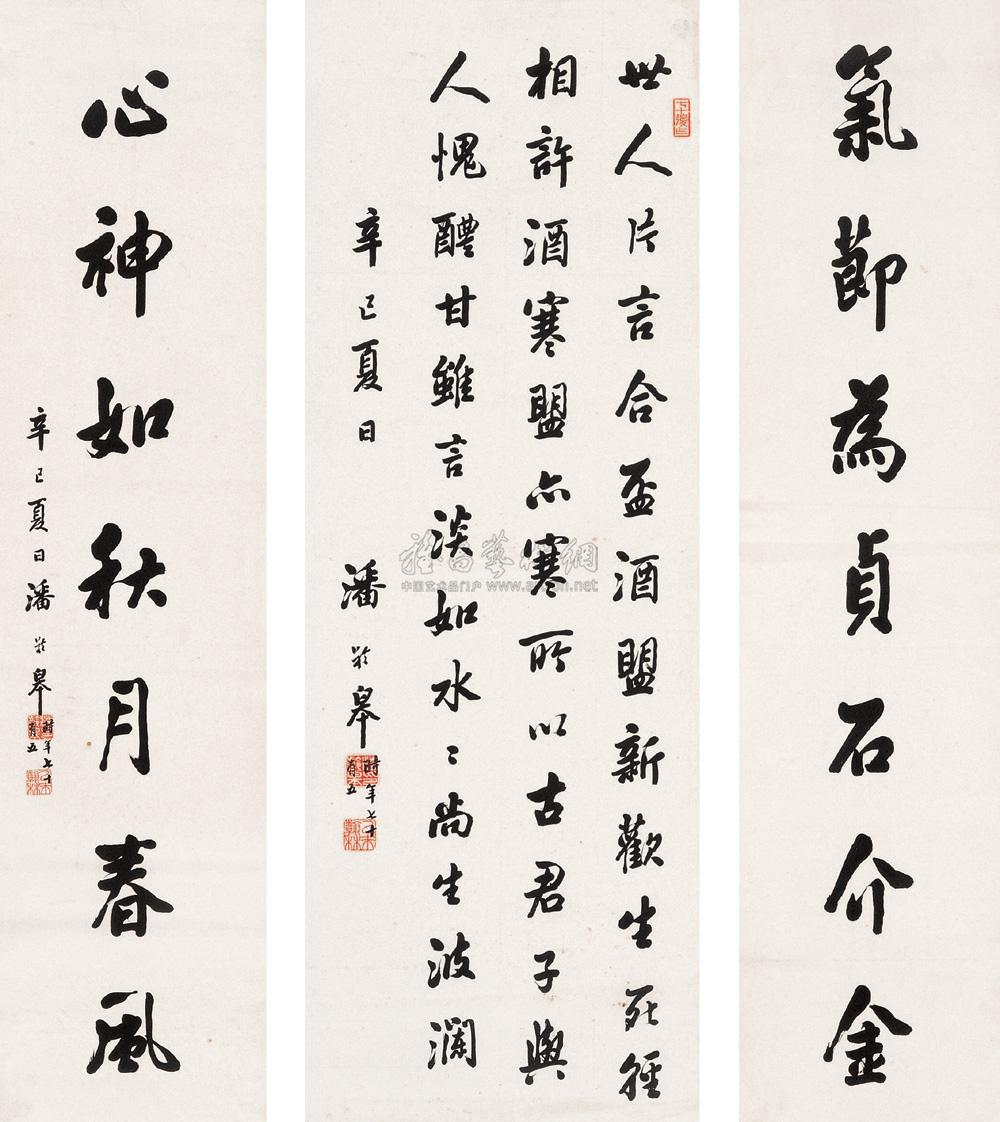 氣節為貞石介金
世人片言合盃酒盟新歡生死輕
相許酒寒盟亦寒所以古君子與
人愧醴甘雖言淡如水〻尚生波瀾
辛巳夏日 潘齡皋
時年七十
有五
心神如秋月春風
辛巳夏日潘齡皋
時年七十
有五
中国艺术品门户